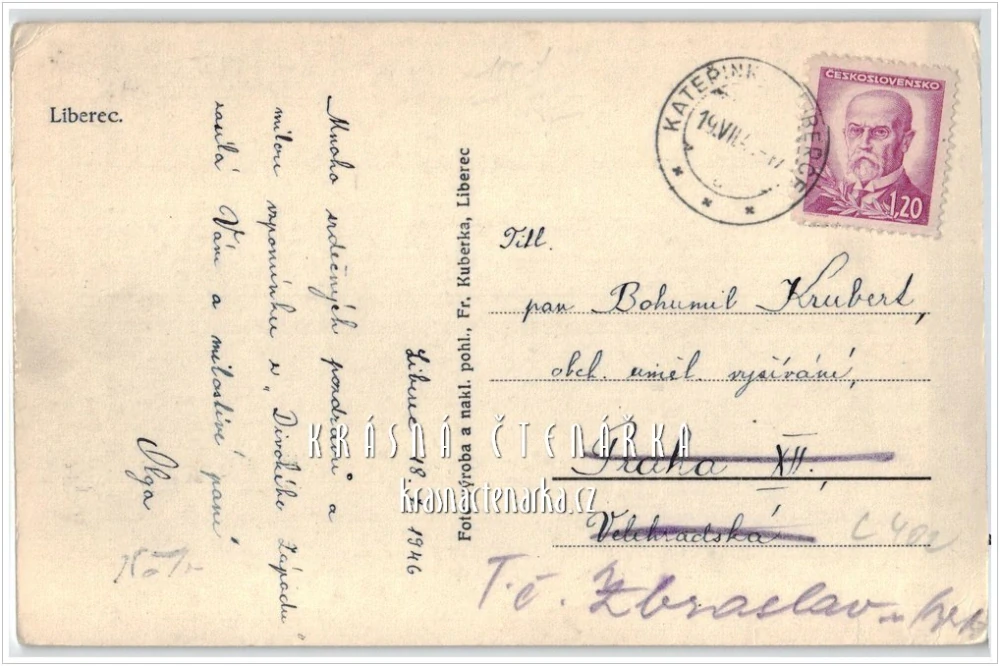 Liberec.
Mnoho srdečných pozdravů a
milou vzpomínku z „Divokého Západu“
zasílá Vám a milostivé paní
Olga
Liberec 18. 1946
Fotovýroba a nakl. pohl., Fr. Kuberka, Liberec
KATEŘINK LIBERCE
19.VII.4
ČESKOSLOVENSKO
1,20
Titl.
pan Bohumil Krubert,
obch. uměl. vyšívání,
Praha XII.
Velehradská
T.č. Zbraslav
KRÁSNÁ ČTENÁŘKA
krasnactenarka.cz